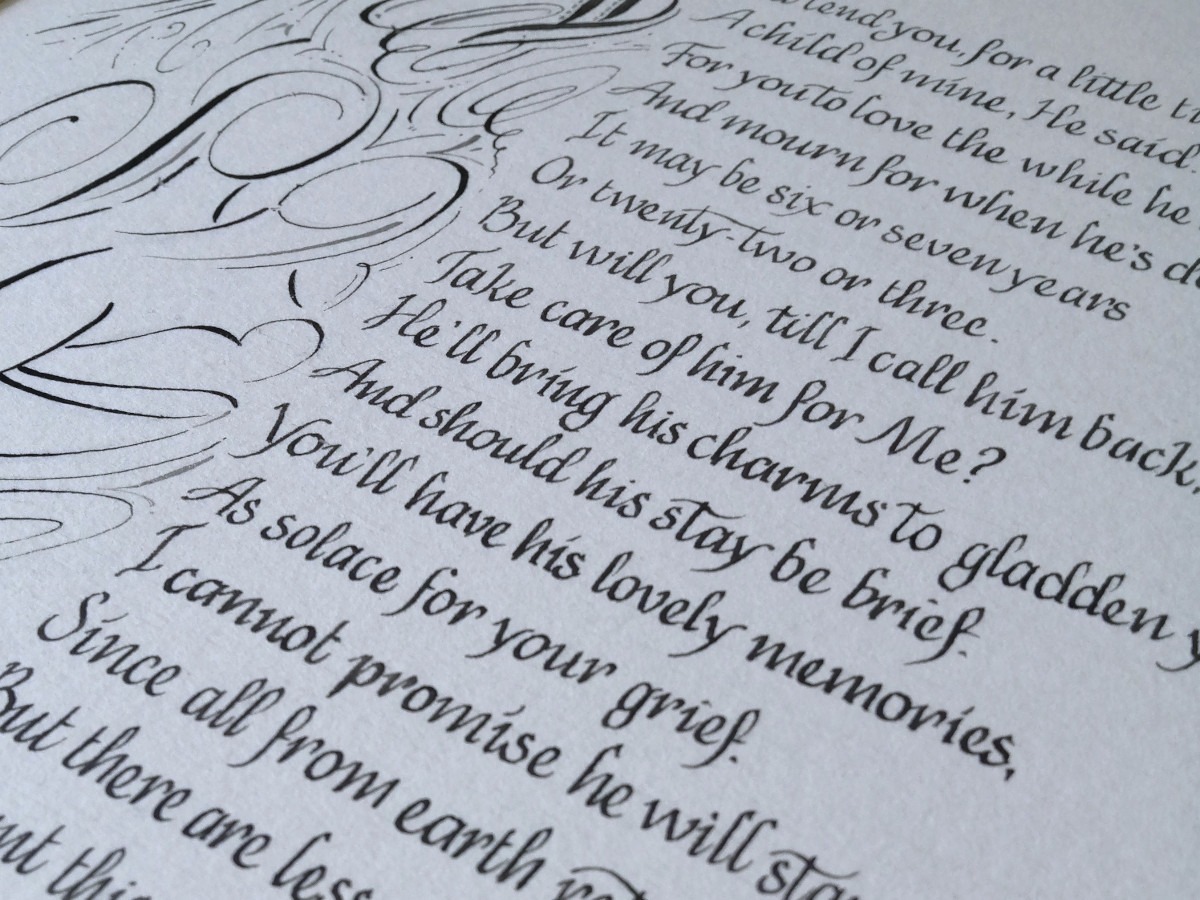 lend you, for a little
A child of mine, He said.
For you to love the while he
And mourn for when he's
It may be six or seven years
Or twenty-two or three.
But will you, till I call him back,
Take care of him for Me?
He'll bring his charms to gladden
And should his stay be brief.
You'll have his lovely memories,
As solace for your grief.
I cannot promise he will
Since all from earth
But there are